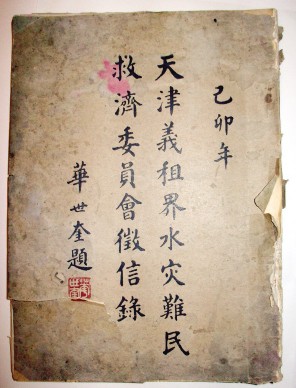 己卯年
天津義租界水灾難民
救濟委員會徵信錄
華世奎題